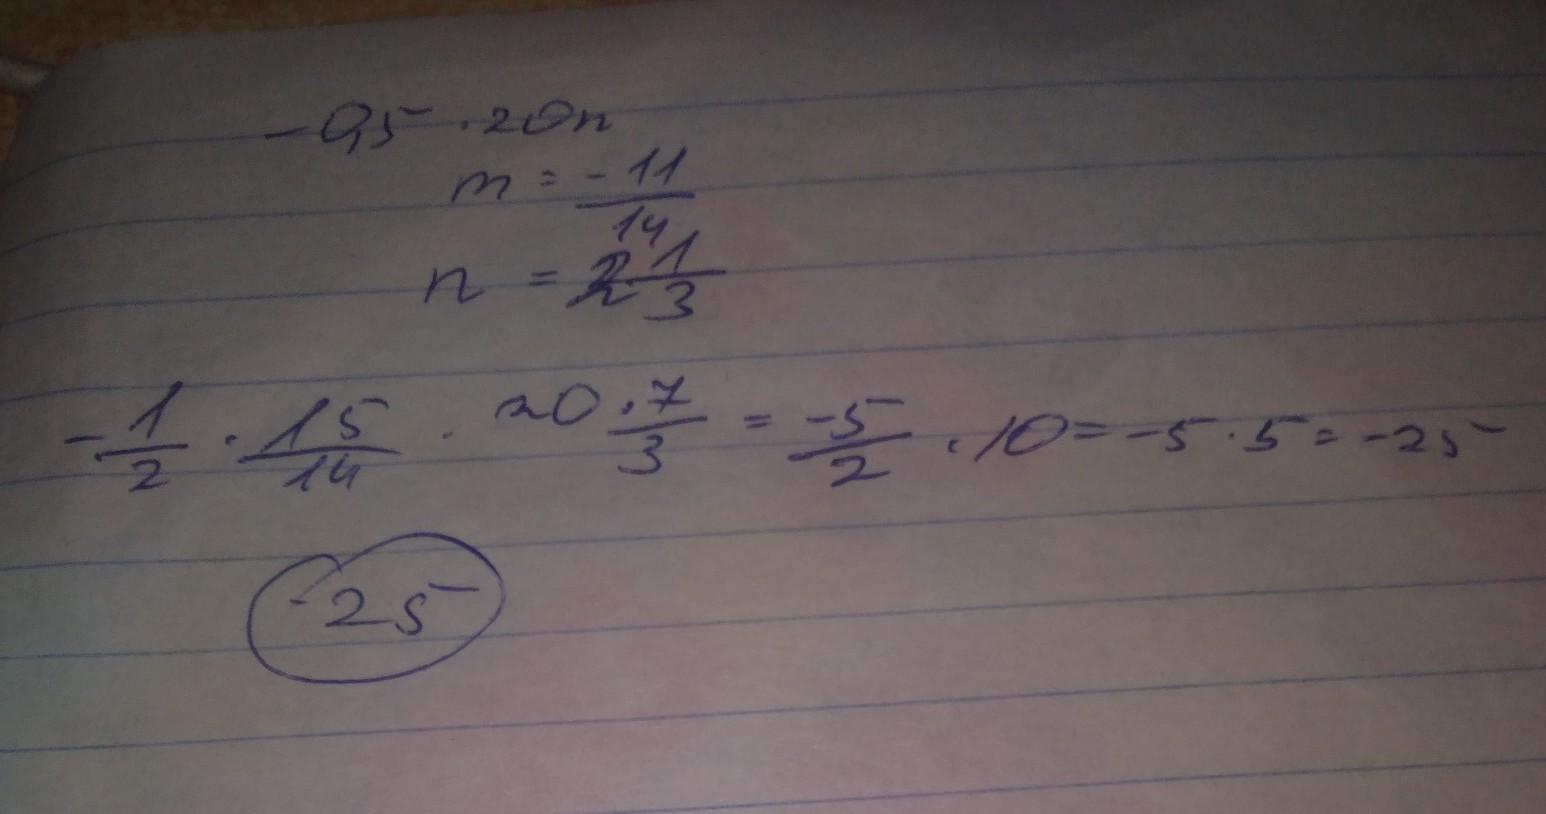 -0,5 · 20n
m = -11/14
n = 2 1/3
-1/2 · 15/14 · 20 · 7/3 = -5/2 · 10 = -5 · 5 = -25
-25